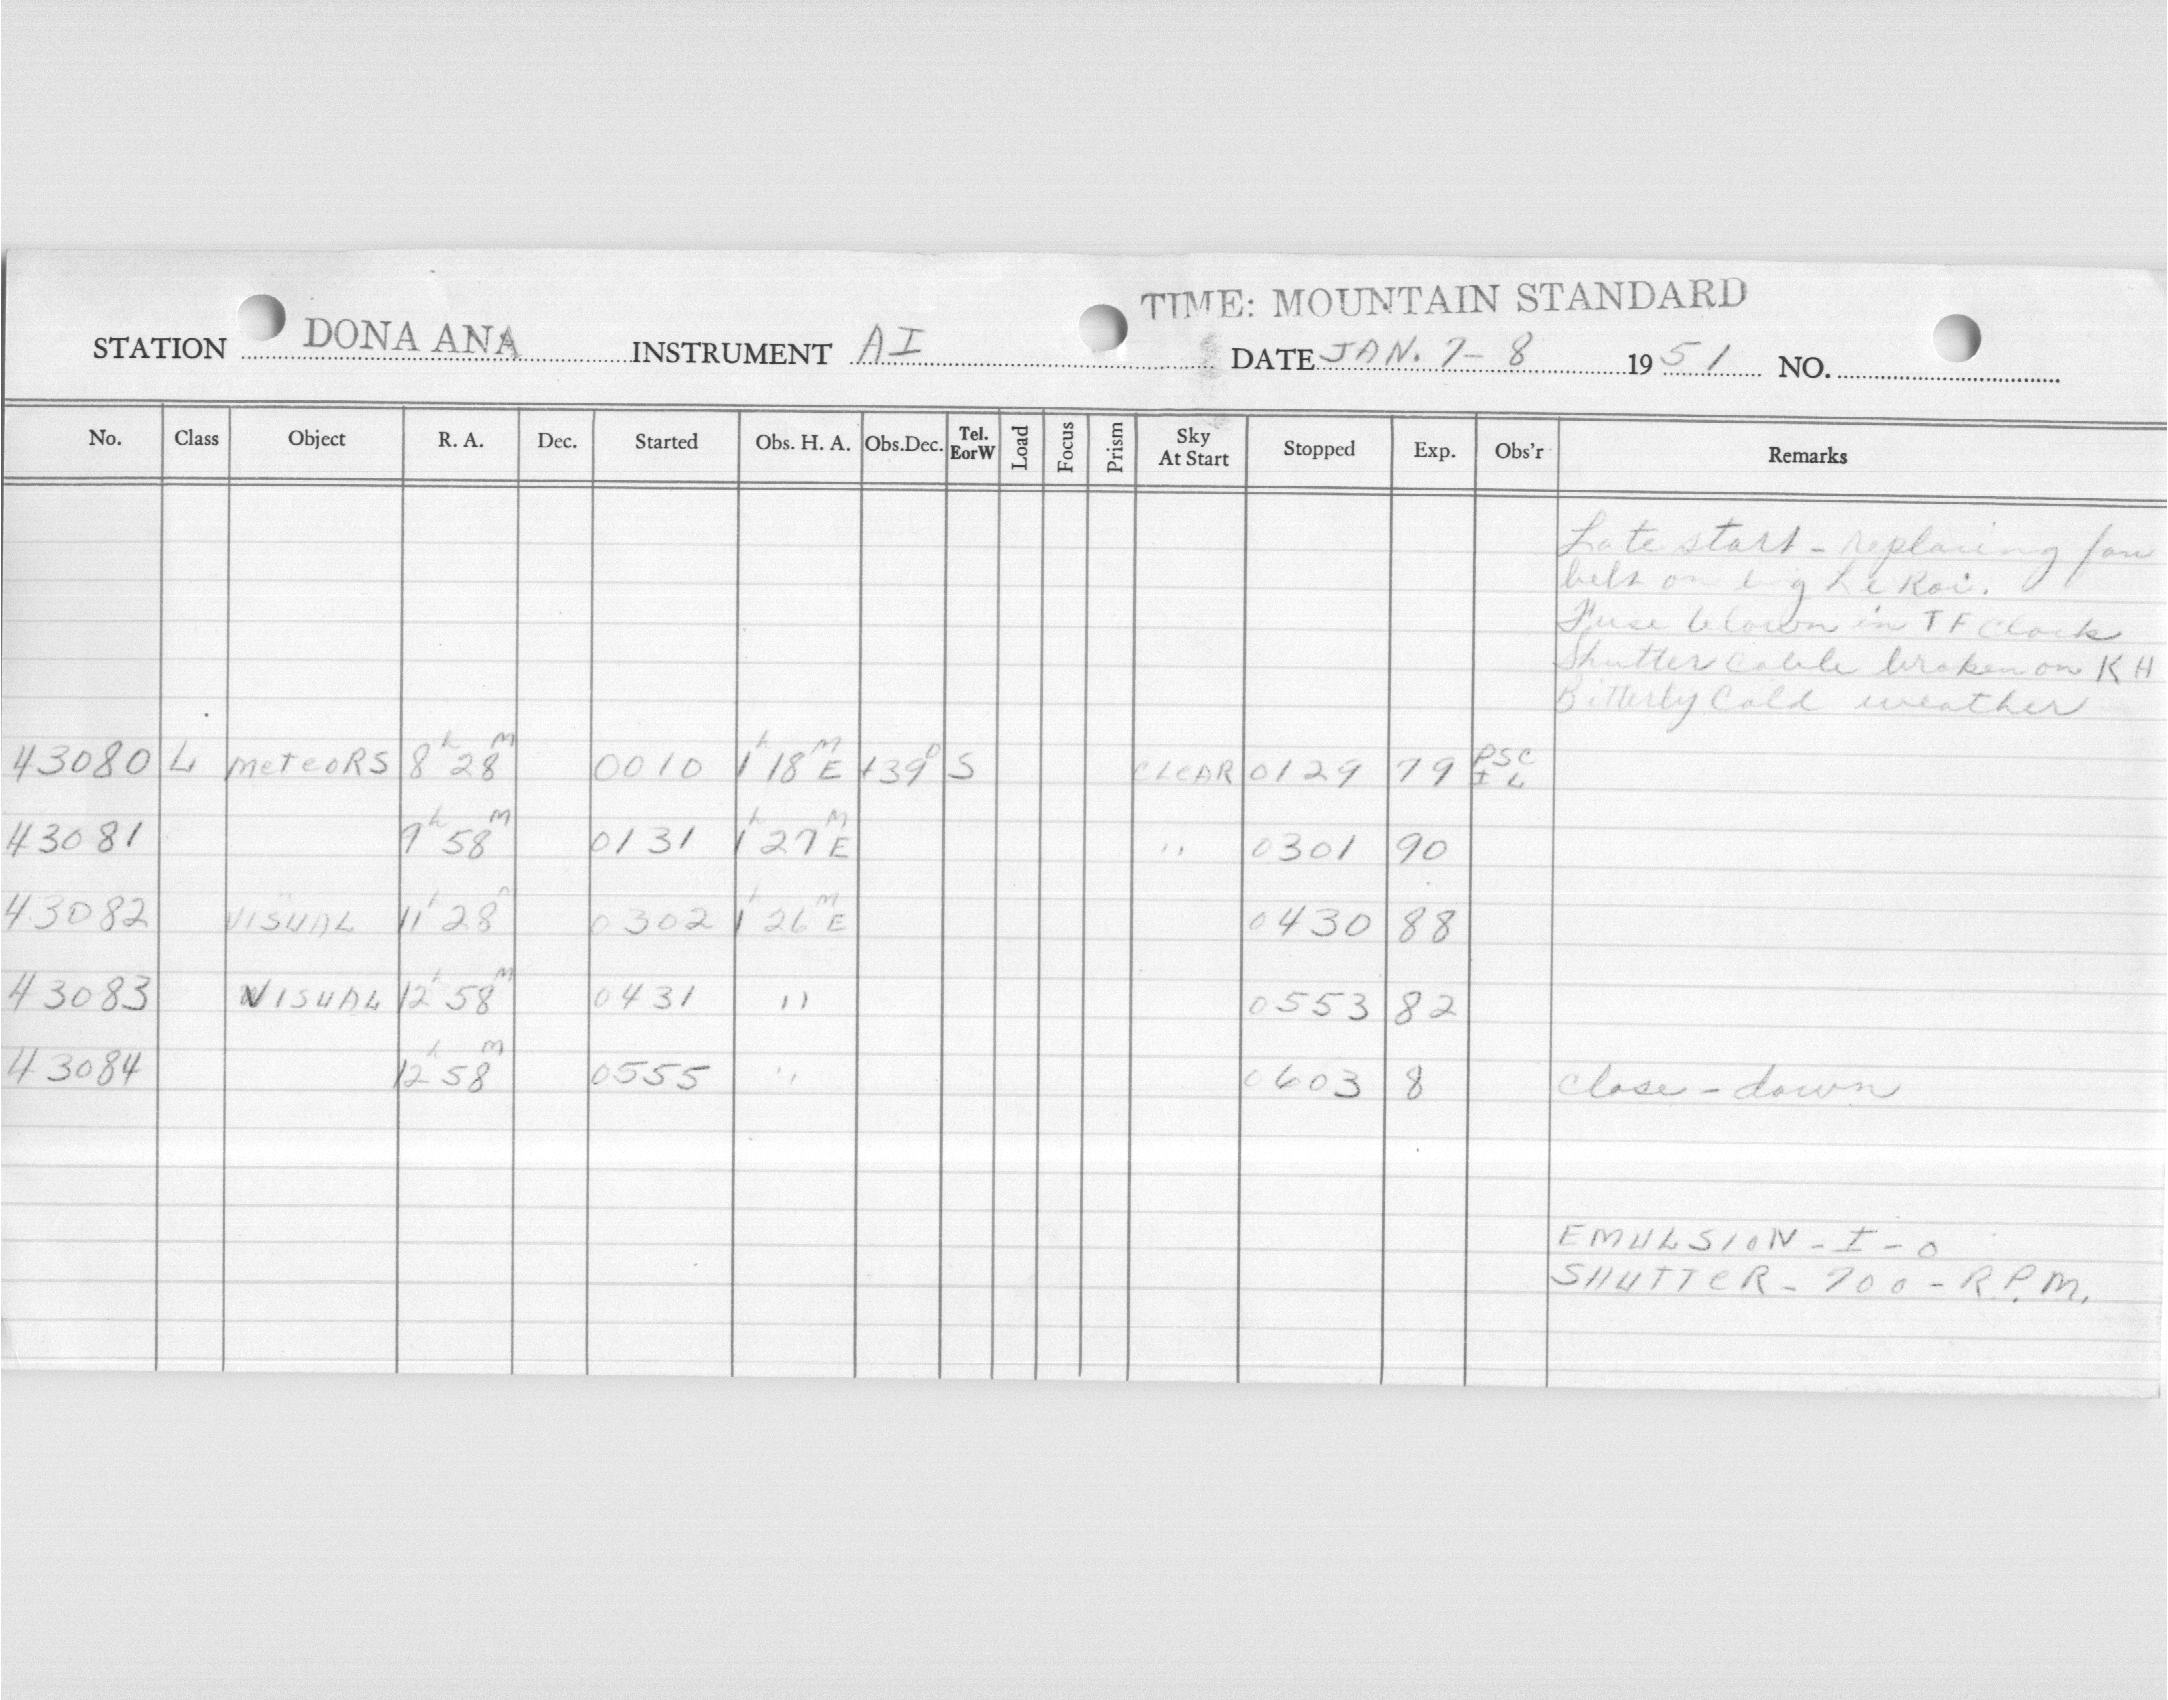 TIME: MOUNTAIN STANDARD
STATION DONA ANA INSTRUMENT AI DATE JAN. 7-8 1951 NO.
No. Class Object R. A. Dec. Started Obs. H. A. Obs.Dec. Tel. EorW Load Focus Prism Sky At Start Stopped Exp. Obs'r Remarks
Late start - replacing fan
belt on big Le Roi.
Fuse blown in TF Clock
Shutter cable broken on KH
Bitterly Cold weather
43080 L meteoRS 8h 28M 0010 1h 18M E +39° S CLeAR 0129 79 PSC IL
43081 9h 58M 0131 1h 27M E " 0301 90
43082 VISUAL 11h 28M 0302 1h 26M E 0430 88
43083 VISUAL 12h 58M 0431 " 0553 82
43084 12h 58M 0555 " 0603 8 Close-down
EMULSION - I - O
SHUTTeR - 700 - R.P.M.